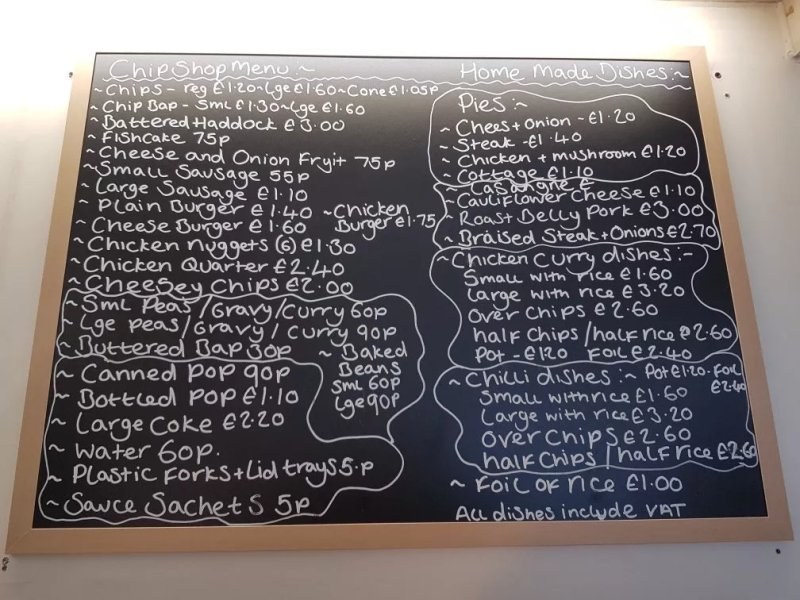 Chip Shop Menu:~
~ Chips - reg £1.20 ~ Lge £1.60 ~ Cone £1.05p
~ Chip Bap - Sml £1.30 ~ Lge £1.60
~ Battered Haddock £3.00
~ Fishcake 75p
~ Cheese and Onion Fryit 75p
~ Small Sausage 55p
~ Large Sausage £1.10
~ Plain Burger £1.40
~ Cheese Burger £1.60
~ Chicken
Burger £1.75
~ Chicken nuggets (6) £1.30
~ Chicken Quarter £2.40
~ Cheesey Chips £2.00
~ Sml Peas / Gravy / Curry 60p
~ Lge peas / Gravy / Curry 90p
~ Buttered Bap 30p
~ Baked
Beans
Sml 60p
Lge 90p
~ Canned Pop 90p
~ Bottled Pop £1.10
~ Large Coke £2.20
~ Water 60p.
~ Plastic Forks + Lid trays 5.p
~ Sauce Sachets 5p
Home Made Dishes:~
Pies:~
~ Chees + Onion - £1.20
~ Steak - £1.40
~ Chicken + mushroom £1.20
~ Cottage £1.10
~ Lasangne £
~ Cauliflower Cheese £1.10
~ Roast Belly Pork £3.00
~ Braised Steak + Onions £2.70
~ Chicken Curry dishes:-
Small with rice £1.60
Large with rice £3.20
Over Chips £2.60
half Chips / half rice £2.60
Pot - £1.20 Foil £2.40
~ Chilli dishes:~ Pot £1.20 - Foil
£2.40
Small with rice £1.60
Large with rice £3.20
Over Chips £2.60
half Chips / half rice £2.60
~ Foil of rice £1.00
All dishes include VAT